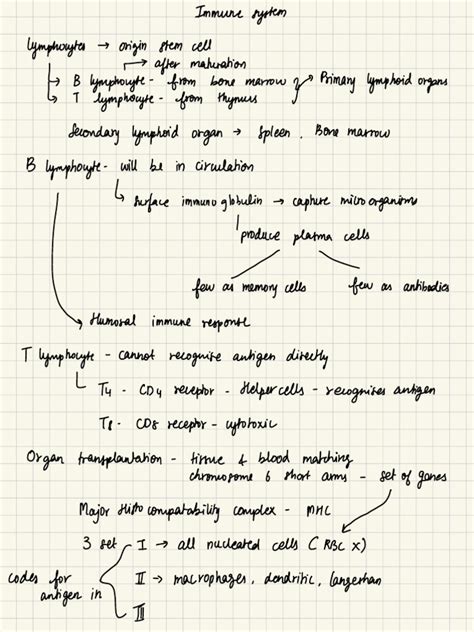 Immune system
lymphocytes → origin stem cell
→ after maturation
→ B lymphocyte - from bone marrow
→ T lymphocyte - from thymus
→ Primary lymphoid organs
Secondary lymphoid organ → spleen, Bone marrow
B lymphocyte - will be in circulation
↳ surface immuno globulin → capture micro organisms
produce plasma cells
few as memory cells few as antibodies
→ Humoral immune response
T lymphocyte - cannot recognise antigen directly
T4 - CD4 receptor - Helper cells - recognises antigen
T8 - CD8 receptor - cytotoxic
Organ transplantation - tissue & blood matching
chromosome 6 short arms - set of genes
Major Histo compatability complex - MHC
3 set I → all nucleated cells (RBC x)
codes for antigen in
II → macrophages, dendritic, langerhan
III